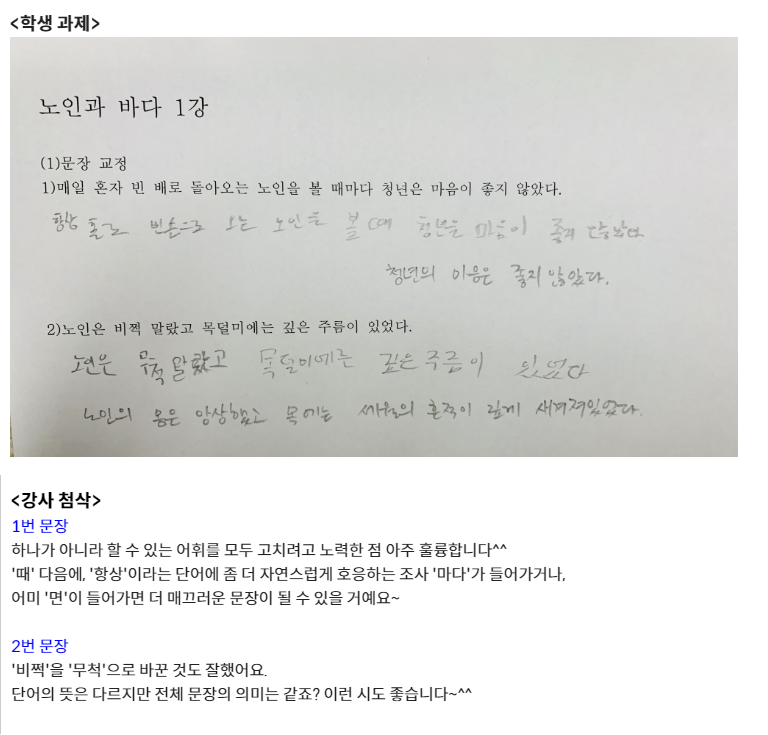 <학생 과제>
노인과 바다 1강
(1)문장 교정
1)매일 혼자 빈 배로 돌아오는 노인을 볼 때마다 청년은 마음이 좋지 않았다.
항상 홀로 빈손으로 오는 노인을 볼 때 청년은 마음이 좋지 않았다
청년의 마음은 좋지 않았다.
2)노인은 비쩍 말랐고 목덜미에는 깊은 주름이 있었다.
노인은 무척 말랐고 목덜미에는 깊은 주름이 있었다
노인의 몸은 앙상했고 목에는 세월의 흔적이 깊게 새겨져있었다.
<강사 첨삭>
1번 문장
하나가 아니라 할 수 있는 어휘를 모두 고치려고 노력한 점 아주 훌륭합니다^^
'때' 다음에, '항상'이라는 단어에 좀 더 자연스럽게 호응하는 조사 '마다'가 들어가거나,
어미 '면'이 들어가면 더 매끄러운 문장이 될 수 있을 거예요~
2번 문장
'비쩍'을 '무척'으로 바꾼 것도 잘했어요.
단어의 뜻은 다르지만 전체 문장의 의미는 같죠? 이런 시도 좋습니다~^^